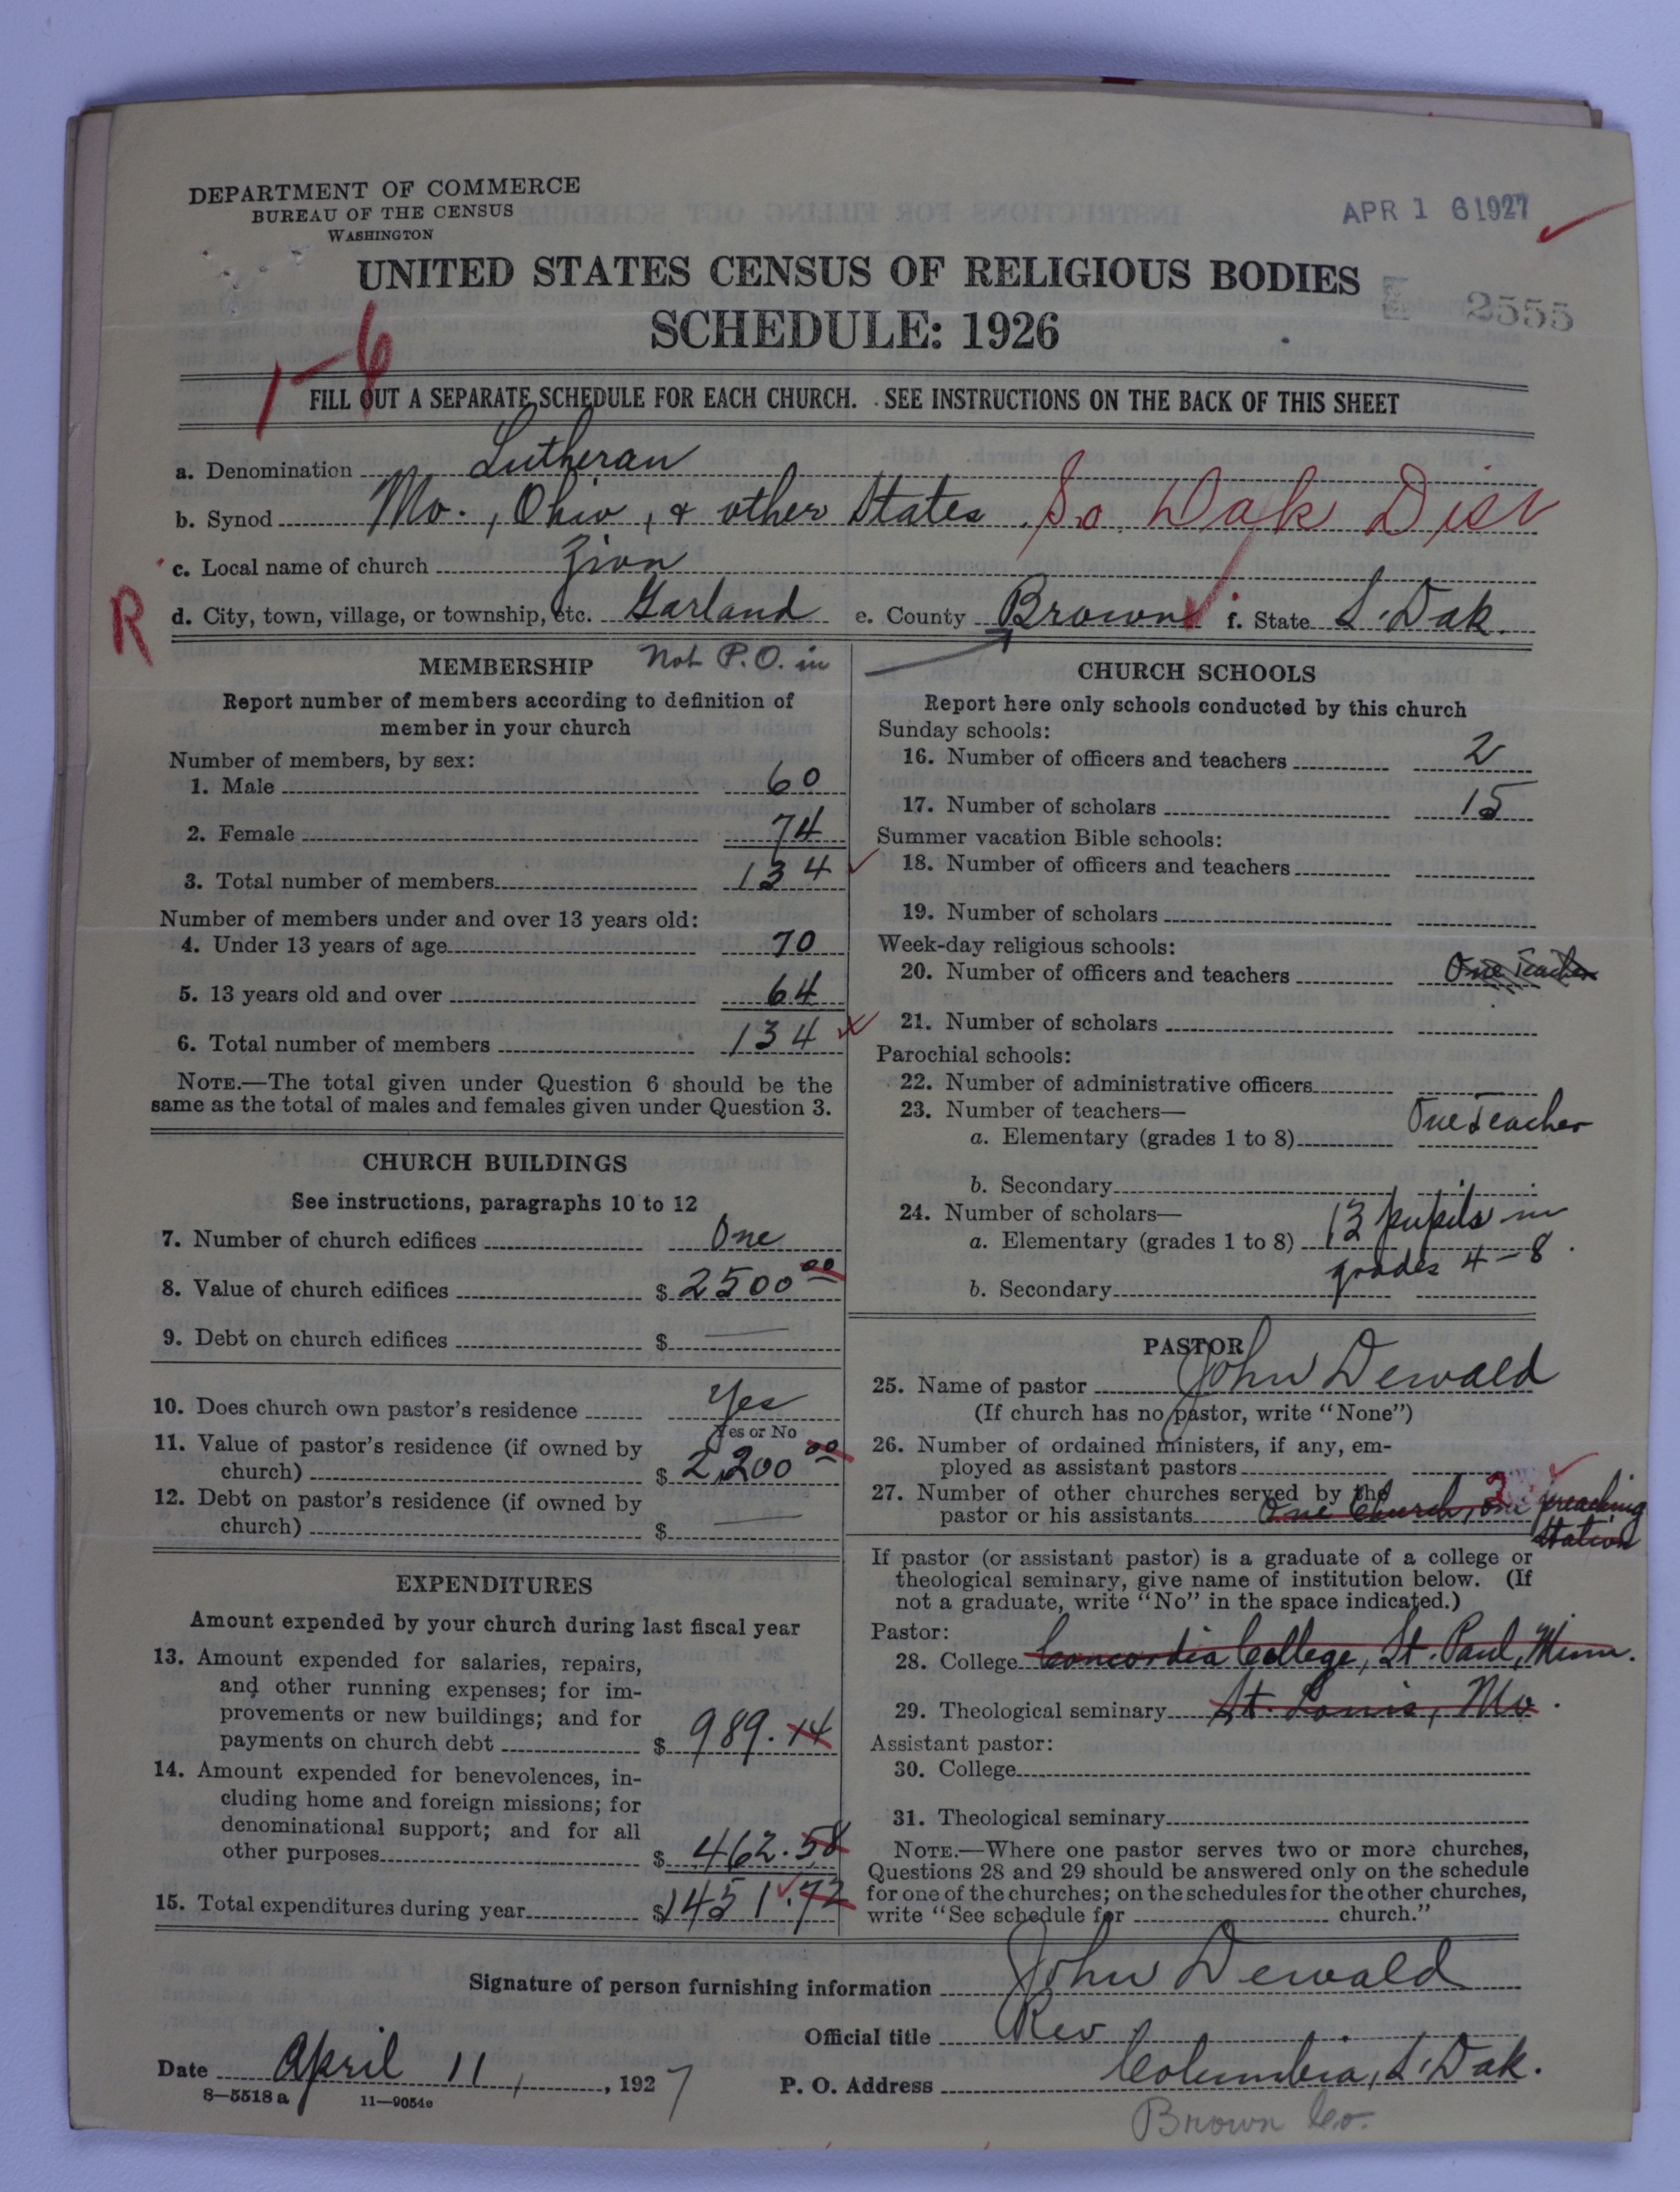 DEPARTMENT OF COMMERCE
BUREAU OF THE CENSUS
WASHINGTON
APR 16 1927
UNITED STATES CENSUS OF RELIGIOUS BODIES
SCHEDULE: 1926
2555
1-6
FILL OUT A SEPARATE SCHEDULE FOR EACH CHURCH. SEE INSTRUCTIONS ON THE BACK OF THIS SHEET
a. Denomination Lutheran
b. Synod Mo., Ohio, & other States So. Dak Dist
c. Local name of church Zion
R
d. City, town, village, or township, etc. Garland e. County Brown f. State S. Dak.
Not P.O. in
MEMBERSHIP
Report number of members according to definition of
member in your church
Number of members, by sex:
1. Male 60
2. Female 74
3. Total number of members 134
Number of members under and over 13 years old:
4. Under 13 years of age 70
5. 13 years old and over 64
6. Total number of members 134
NOTE.—The total given under Question 6 should be the
same as the total of males and females given under Question 3.
CHURCH BUILDINGS
See instructions, paragraphs 10 to 12
7. Number of church edifices One
8. Value of church edifices $ 2500 00
9. Debt on church edifices $ —
10. Does church own pastor's residence Yes
Yes or No
11. Value of pastor's residence (if owned by
church) $ 2,200 00
12. Debt on pastor's residence (if owned by
church) $ —
EXPENDITURES
Amount expended by your church during last fiscal year
13. Amount expended for salaries, repairs,
and other running expenses; for im-
provements or new buildings; and for
payments on church debt $ 989.14
14. Amount expended for benevolences, in-
cluding home and foreign missions; for
denominational support; and for all
other purposes $ 462.58
15. Total expenditures during year $ 1451.72
CHURCH SCHOOLS
Report here only schools conducted by this church
Sunday schools:
16. Number of officers and teachers 2
17. Number of scholars 15
Summer vacation Bible schools:
18. Number of officers and teachers
19. Number of scholars
Week-day religious schools:
20. Number of officers and teachers One Teacher
21. Number of scholars
Parochial schools:
22. Number of administrative officers
23. Number of teachers—
a. Elementary (grades 1 to 8) One Teacher
b. Secondary
24. Number of scholars—
a. Elementary (grades 1 to 8) 13 pupils in
grades 4-8
b. Secondary
PASTOR
25. Name of pastor John Dewald
(If church has no pastor, write "None")
26. Number of ordained ministers, if any, em-
ployed as assistant pastors
27. Number of other churches served by the
pastor or his assistants One Church, one preaching
station
2
If pastor (or assistant pastor) is a graduate of a college or
theological seminary, give name of institution below. (If
not a graduate, write "No" in the space indicated.)
Pastor:
28. College Concordia College, St. Paul, Minn.
29. Theological seminary St. Louis, Mo.
Assistant pastor:
30. College
31. Theological seminary
NOTE.—Where one pastor serves two or more churches,
Questions 28 and 29 should be answered only on the schedule
for one of the churches; on the schedules for the other churches,
write "See schedule for church."
Signature of person furnishing information John Dewald
Official title Rev.
Date April 11, 1927
P. O. Address Columbia, S. Dak.
8—5518 a 11—9054c
Brown Co.